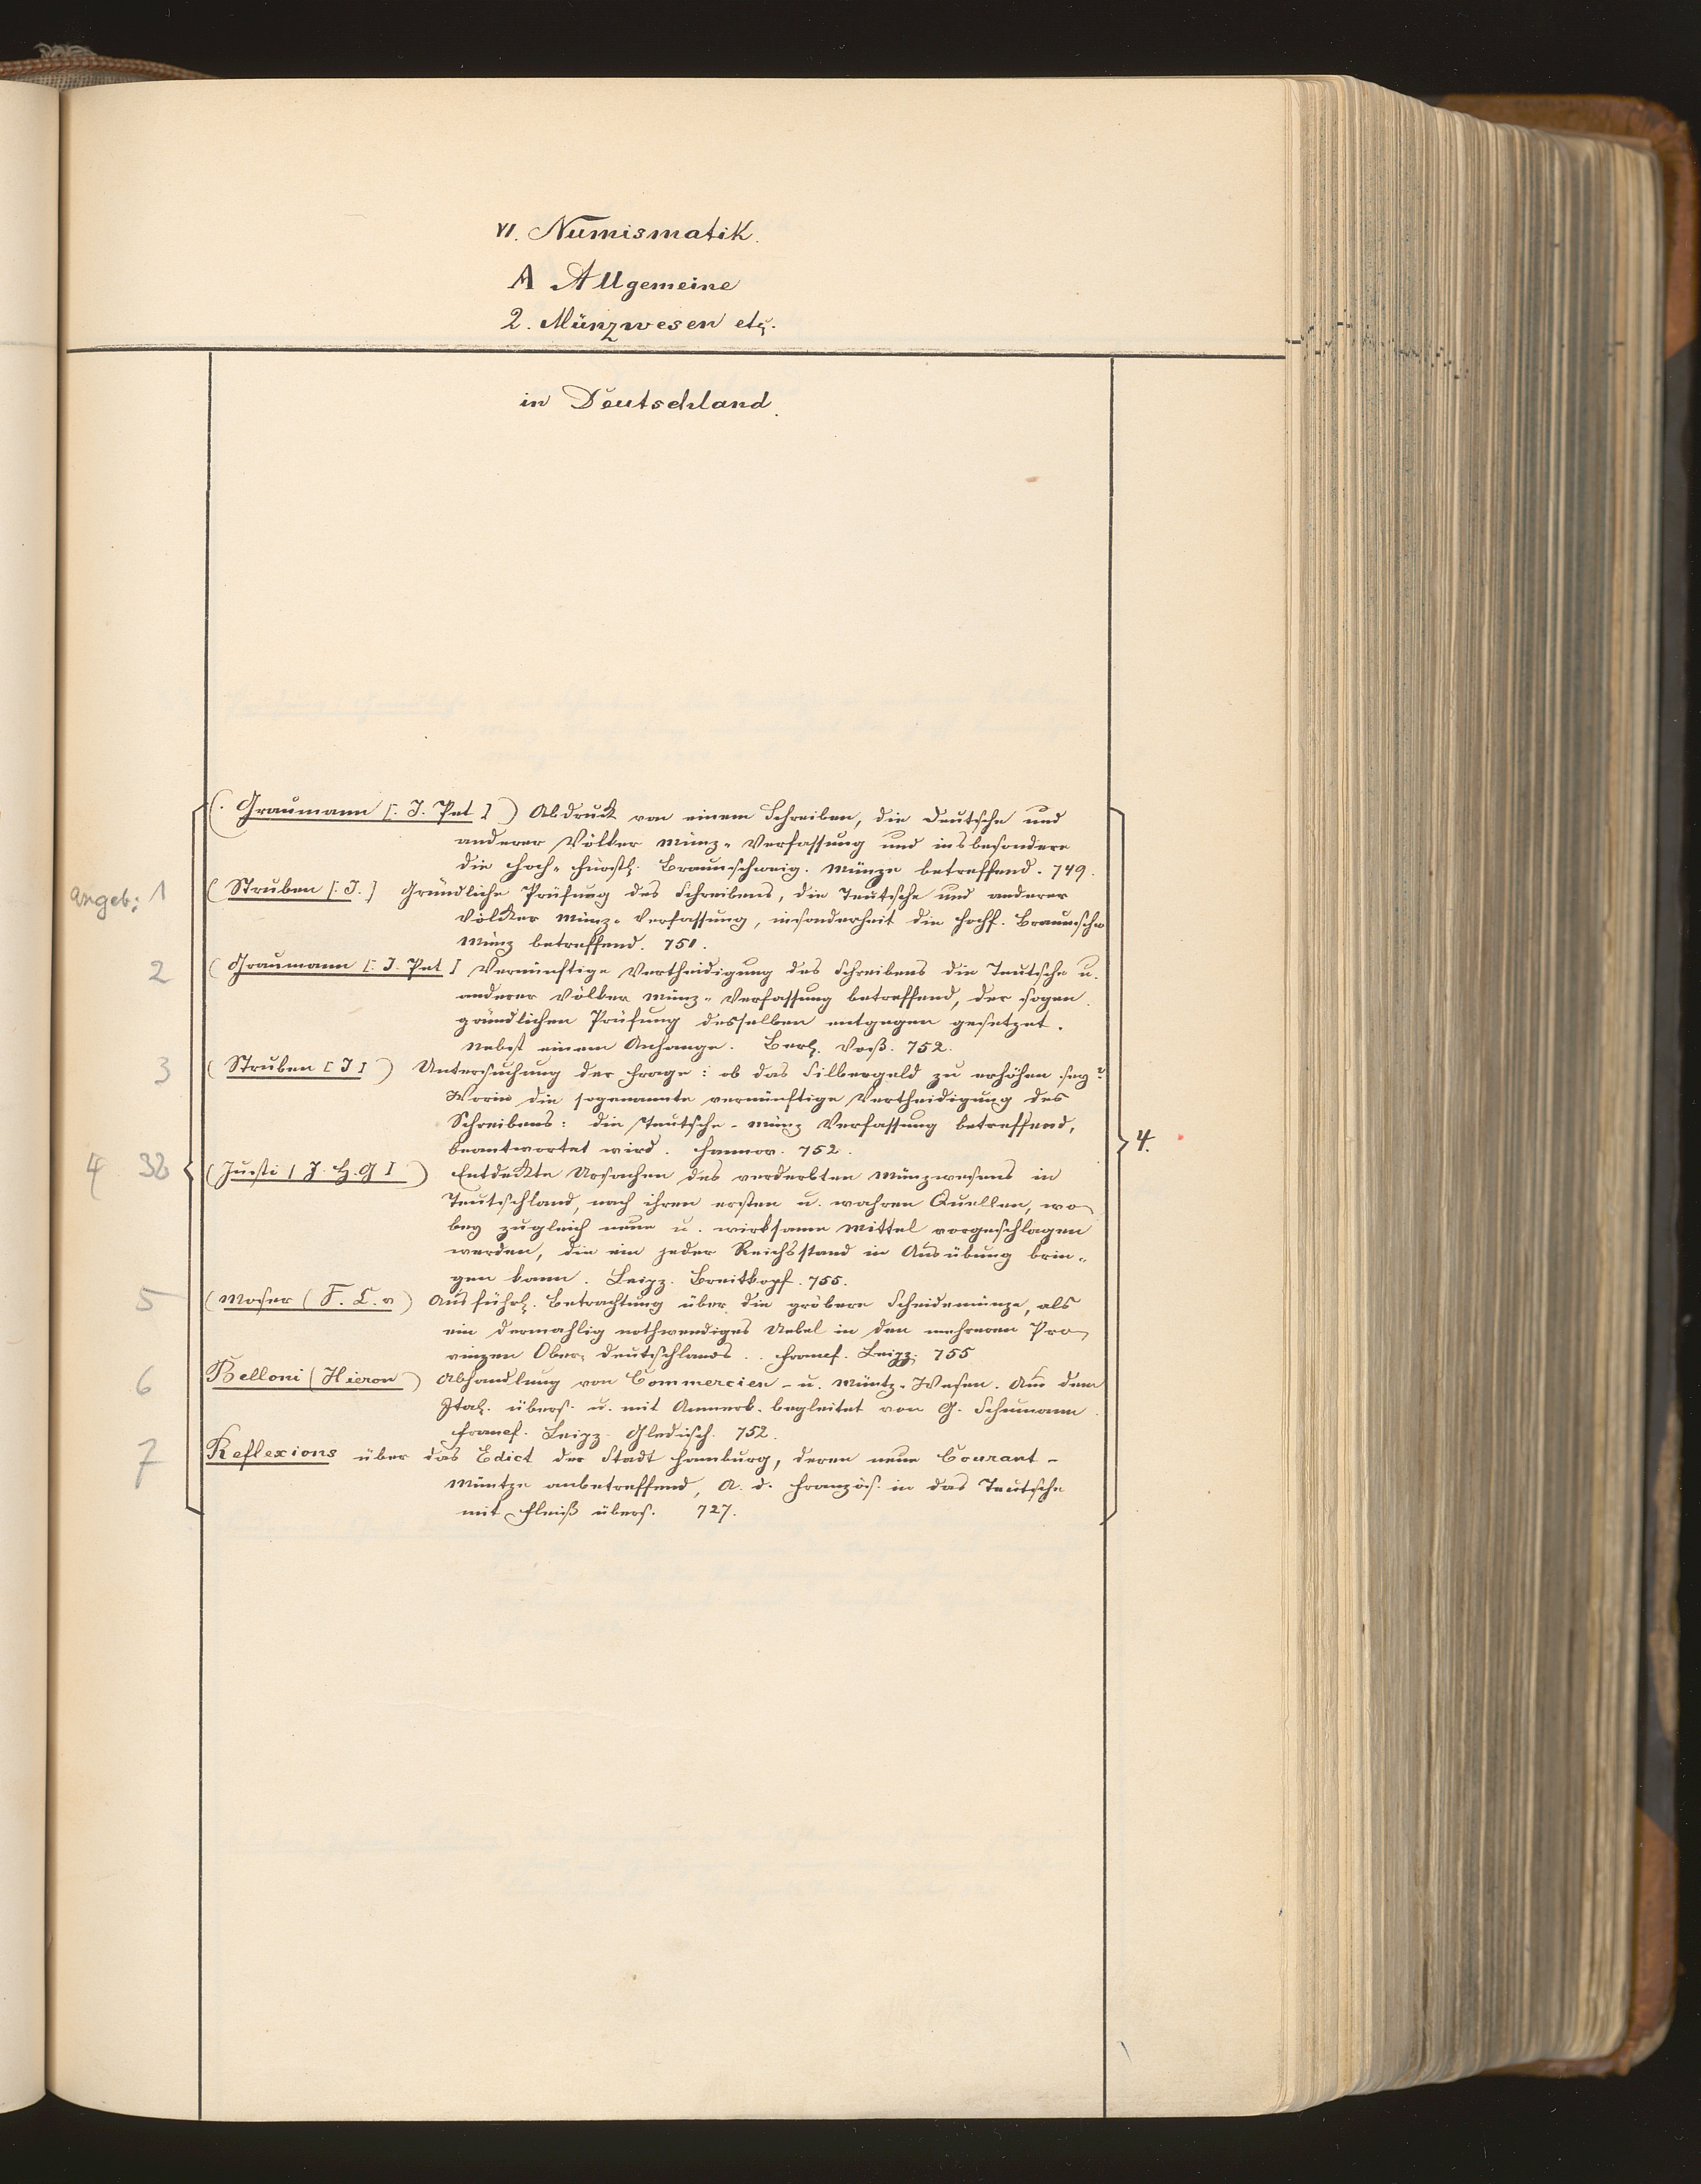 VI. Numismatik.
A Allgemeine
2. Münzwesen etc.
in Deutschland.
(. Graumann [. J. Pet ] ) Abdruck von einem Schreiben, die Deutsche und
anderer Völker Münz-Verfassung und insbesondere
die Hoch-Fürstl. Braunschweig. Münze betreffend. 749.
angeb: 1 ( Struben [. J. ] Gründliche Prüfung des Schreibens, die Teutsche und anderer
Völcker Münz-Verfassung, insonderheit die Hochf. Braunschw
Münz betreffend. 750.
2 ( Graumann [. J. Pet ] Vernünftige Vertheidigung des Schreibens die Teutsche u.
anderer Völker Münz-Verfassung betreffend, der sogen.
gründlichen Prüfung desselben entgegen gesetzet.
Nebst einem Anhange. Berl. Voß. 752.
3 ( Struben [ J ] ) Untersuchung der Frage: ob das Silbergeld zu erhöhen sey?
Worin die sogenannte vernünftige Vertheidigung des
Schreibens: die Teutsche-Münz Verfassung betreffend,
beantwortet wird. Hannov. 752.
4.
4 32 ( Justi [ J. H. G ] ) Entdeckte Ursachen des verderbten Münzwesens in
Teutschland, nach ihren ersten u. wahren Quellen, wo
bey zugleich neue u. wirksame Mittel vorgeschlagen
werden, die ein jeder Reichsstand in Ausübung brin-
gen kann. Leipz. Breitkopf. 755.
5 ( Moser ( F. C. v ) Ausführl. Betrachtung über die gröbere Scheidemünze, als
ein dermahlig nothwendiges Uebel in den mehreren Pro
vinzen Ober-Deutschlands.. Francf. Leipz. 755
6 Belloni ( Hieron ) Abhandlung von Commercien- u. Müntz-Wesen. Aus dem
Ital. übers. u. mit Anmerk. begleitet von G. Schumann.
Francf. Leipz. Gleditsch. 752.
7 Reflexions über das Edict der Stadt Hamburg, deren neue Courant-
Müntze anbetreffend, A. d. Französ. in das Teutsche
mit Fleiß übers. 727.